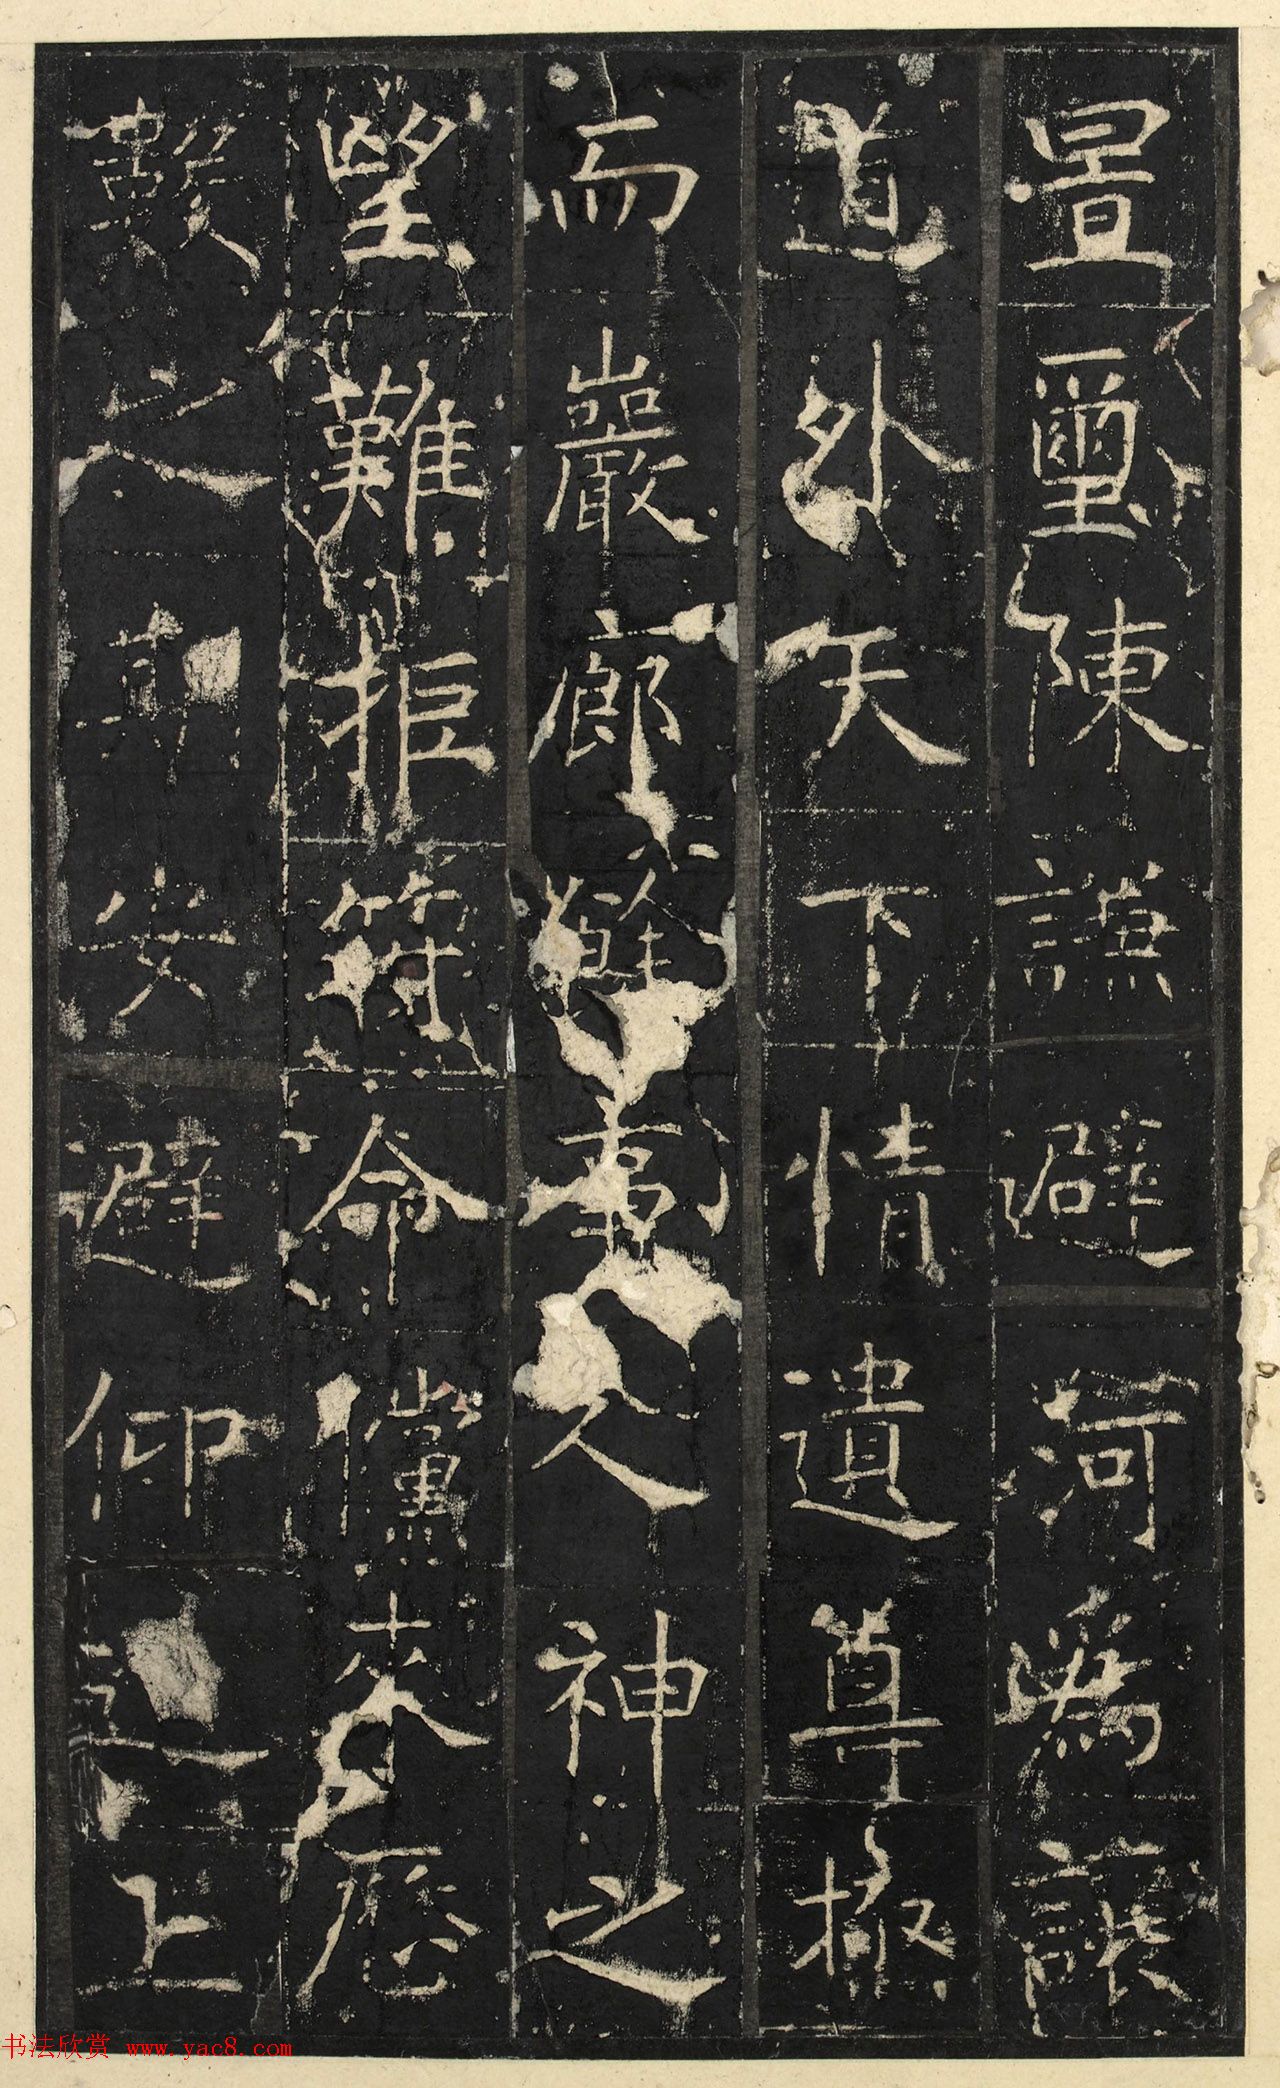 疊璽陳謙避河為讓
道外天下情遺尊極
而嚴廊餘事人神之
望難拒符命儻来歷
數之期安避仰上
书法欣赏 www.yac8.com